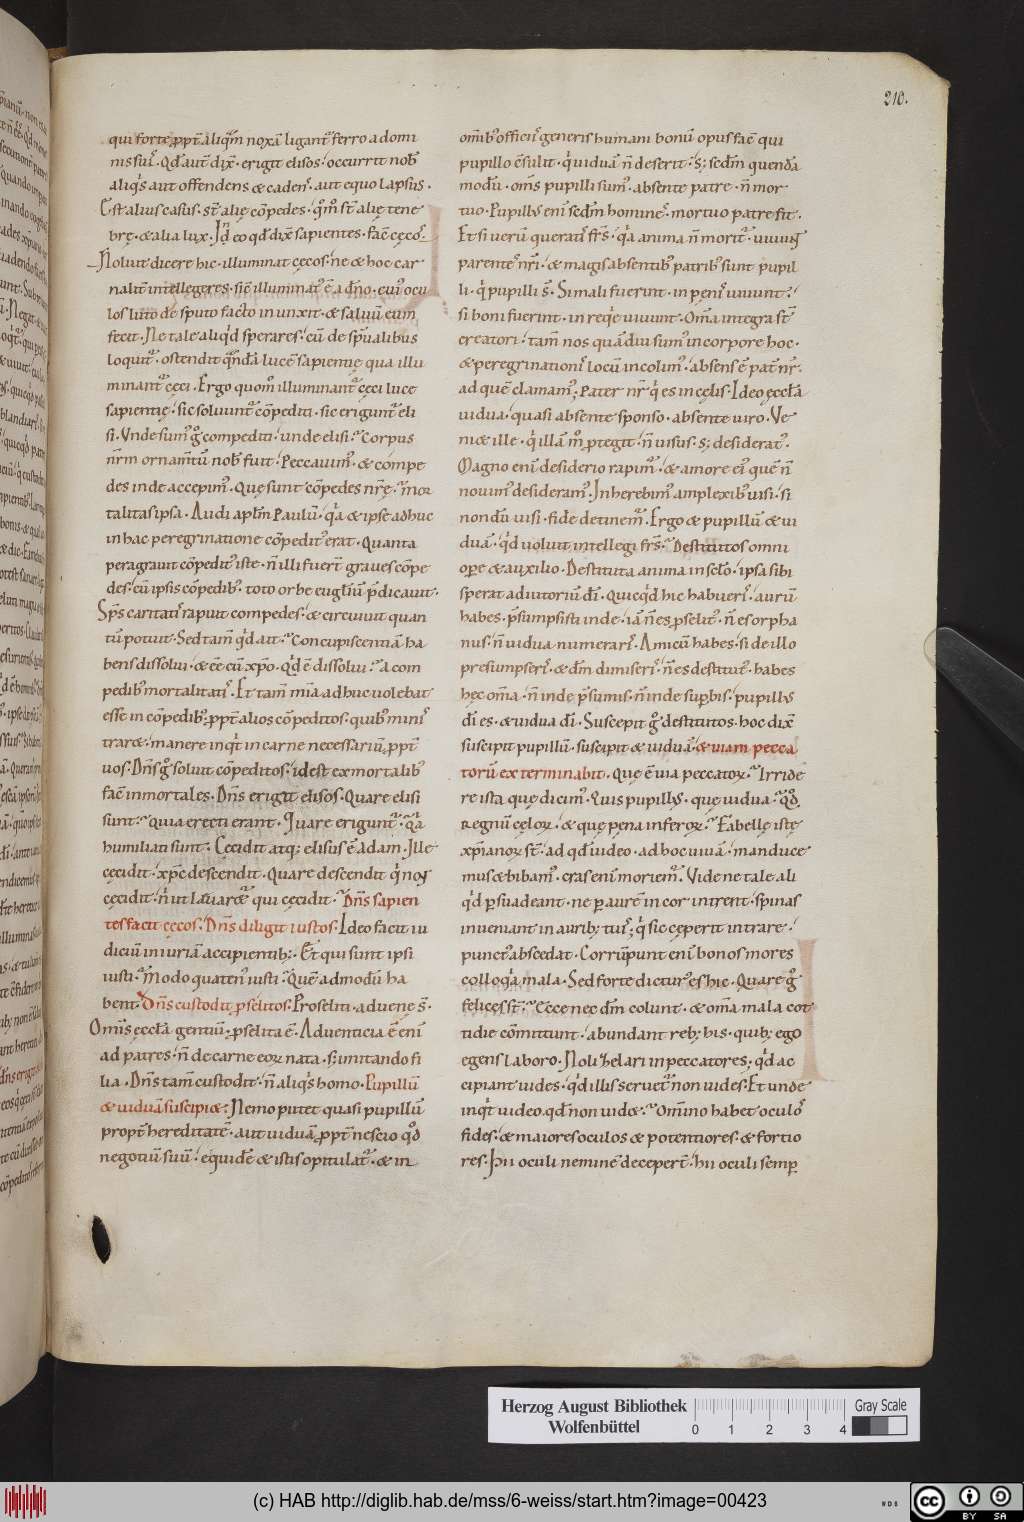 210.
qui forte ꝓpt̄ aliqͫ noxā ligant᷑ ferro a domi
nis sui᷒. Qd̄ aut̄ dix̄. erigit elisos. occurrit nob᷒
aliq͛s aut offendens & caden᷒. aut equo lapsus.
Est alius casus. st̄ alię cōpedes. qͦm̄ st̄ alię tene
brę. & alia lux. Id̄eo qd̄ dix̄ sapientes. facē cęco᷒.
Noluit dicere hic. illuminat cęcos. ne & hoc car
nalit̄ intellegeres. sic̄ illuminat᷒ ē a dn̄o. cui᷒ ocu
los luto de sputo facto inunxit. & saluū eum
fecit. Ne tale aliqd̄ sperares. cū de sp̄ualibus
loquit᷑. ostendit qͦndā lucē sapientię qua illu
minant᷑ cęci. Ergo quom̄ illuminant᷑ cęci luce
sapientię. sic soluunt᷑ cōpediti. sic erigunt᷑ eli
si. Vnde sum᷒ gͦ compediti. unde elisi. Corpus
nr̄m ornam̄tū nob᷒ fuit. Peccauim᷒. & compe
des inde accepim᷒. Quę sunt cōpedes nr̄ę. mor
talitas ipsa. Audi apl̄m Paulū. qͥa & ipse adhuc
in hac peregrinatione cōpedit᷒ erat. Quanta
peragrauit cōpedit᷒ iste. n̄ illi fuer̄t graues cōpe
des. cū ipsis cōpedib᷒. toto orbe eugl̄iū p̄dicauit.
Sp̄s caritati᷒ rapuit compedes. & circuiuit quan
tū potuit. Sed tam̄ qd̄ ait. Concupiscentiā ha
bens dissolui. & eē cū xp̄o. Qd̄ ē dissolui. A com
pedib᷒ mortalitati᷒. Et tam̄ mīa adhuc uolebat
esse in cōpedib᷒. ꝓpt̄ alios cōpeditos. quib᷒ mini᷒
trar&. manere inqͥt in carne necessariū ꝓpt̄
uos. Dn̄s gͦ soluit cōpeditos. idest ex mortalib᷒
facē inmortales. Dn̄s erigit elisos. Quare elisi
sunt. Quia erecti erant. Quare erigunt᷑. qͥa
humiliati sunt. Cecidit atq; elisus ē adam. Ille
cecidit. xp̄c descendit. Quare descendit qͥ non
cecidit. n̄ ut leuar&᷑ qui cecidit. Dn̄s sapien
tes facit cęcos. Dn̄s diligit iustos. Ideo facit iu
diciū iniuriā accipientib;. Et qui sunt ipsi
iusti. Modo quaten᷒ iusti. Quē admodū ha
bent. Dn̄s custodit ꝓselitos. Proseliti. aduenę s̄.
Omīs ęccl̄a gentiū. ꝓselita ē. Aduenticia ē enī
ad patres. n̄ de carne eoꝝ nata. s; imitando fi
lia. Dn̄s tam̄ custodit. n̄ aliq͛s homo. Pupillū
& uiduā suscipi&. Nemo putet quasi pupillū
propt̄ hereditatē. aut uiduā ꝓpt̄ nescio qd̄
negotiū suū. equidē & istis opitulat᷑. & in
omīb᷒ officii᷒ generis humani bonū opus facē qui
pupillo cōsulit. qͥ uiduā n̄ deserit. s; scd̄m quendā
modū. om̄s pupilli sum᷒. absente patre. n̄ mor
tuo. Pupill᷒ enī scd̄m homine᷒. mortuo patre fit.
Et si uerū querati᷒ fr̄s. qͥa anima n̄ morit᷑. uiuuꝫ
parente᷒ nr̄i. & magis absentib᷒ patrib᷒ sunt pupil
li. qͥ pupilli s̄. Si mali fuerint. in pęni᷒ uiuunt.
si boni fuerint. in req̄e uiuunt. Om̄a integra st̄
creatori. tam̄ nos quādiu sum᷒ in corpore hoc.
& peregrinationi᷒ locū incolim᷒. absens ē pat̄ nr̄.
ad quē clamam᷒. Pater nr̄ qͥ es in cęlis. Ideo ęccl̄a
uidua. quasi absente sponso. absente uiro. Ve
ni& ille. qͥ illā m̊ ꝓtegit. n̄ uisus. s; desiderat᷒.
Magno enī desiderio rapim᷒. & amore ei᷒ quē n̄
nouim᷒ desideram᷒. Inherebim᷒ amplexib᷒ uisi. si
nondū uisi. fide detinem᷑. Ergo & pupillū & ui
duā. qd̄ uoluit intellegi fr̄s. Destitutos omni
ope & auxilio. Destituta anima in sc̄lo. ipsa sibi
sperat adiutoriū dī. Quicqd̄ hic habueri᷒. aurū
habes. p̄sumpsisti inde. iā n̄ es ꝓselit᷒. n̄ es orpha
nus. n̄ uidua numerari᷒. Amicū habes. si de illo
presumpseri᷒. & dm̄ dimiseri᷒. n̄ es destitut᷒. habes
hęc om̄a. n̄ inde p̄sumis. n̄ inde supbis. pupill᷒
dī es. & uidua dī. Suscepit gͦ destitutos. hoc dix̄
suscipit pupillū. suscipit & uiduā. & uiam pecca
torū exterminabit. Que ē uia peccatoꝝ. Irridē
re ista quę dicim᷒. Quis pupill᷒. quę uidua. Qd̄
regnū cęloꝝ. & quę pena inferoꝝ. Fabellę istę
xp̄ianoꝝ st̄. ad qd̄ uideo. ad hoc uiuā. manduce
mus & bibam᷒. cras enī moriem᷑. Vide ne tale ali
qd̄ psuadeant. ne p aurē in cor intrent. spinas
inueniant in aurib; tui᷒. qͥ sic cęperit intrare.
punct᷒ abscedat. Corrūpunt enī bonos mores
colloqͥa mala. Sed forte dictur᷒ es hic. Quare gͦ
felices st̄. Ecce nec dm̄ colunt. & om̄a mala cot
tidie cōmittunt. abundant reb; his. quib; ego
egens laboro. Noli helari in peccatores; qd̄ ac
cipiant uides. qd̄ illis seruet᷑ non uides. Et unde
inqͥt uideo. qd̄ non uid&. Omīno habet oculo᷒
fides. & maiores oculos & potentiores. & fortio
res. Hii oculi neminē deceper̄t. hii oculi semp
Herzog August Bibliothek
Wolfenbüttel
0 1 2 3 4
Gray Scale
(c) HAB http://diglib.hab.de/mss/6-weiss/start.htm?image=00423
WDB
cc
BY SA